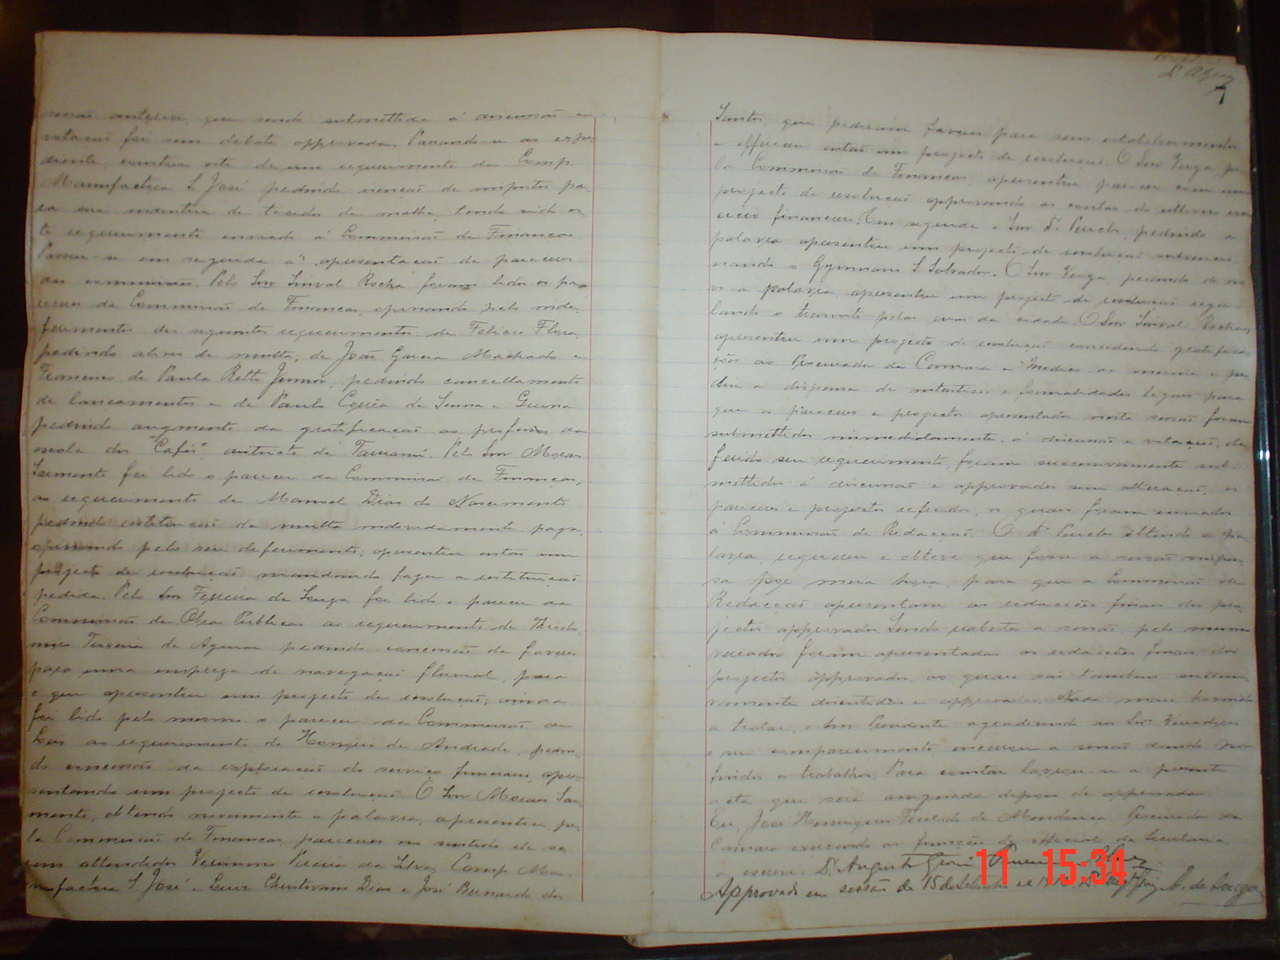 sessão anterior, que sendo submettida á discussão e
votação foi sem debate approvada. Passando-se ao expe-
diente, constou este de um requerimento da Comp.
Manufactora S. José pedindo isenção de impostos pa-
ra sua mentira de tecidos de malha, tendo sido es-
te requerimento enviado á Commissão de Finanças.
Passou-se em seguida á apresentação de pareceres
das commissões. Pelo Snr Sinval Rocha foram lidos os pa-
receres da Commissão de Finanças, opinando pelo inde-
ferimento dos seguintes requerimentos: de Felicio Flora,
pedindo allivio de multa; de João Garcia Machado e
Francisco de Paula Junior, pedindo cancellamento
de lançamentos e de Paulo de Senna e
pedindo augmento da gratificação ao professor da
escola dos "Cafés", districto de Pelo Snr Moraes
Sarmento foi lido o parecer da Commissão de Finanças,
ao requerimento de Manoel Dias do Nascimento,
pedindo restituição da multa indevidamente paga,
opinando pelo seu deferimento; apresentou então um
projecto de resolução mandando fazer a restituição
pedida. Pelo Snr Ferreira de Souza foi lido o parecer da
Commissão de Obras Publicas ao requerimento de Theodo-
miro Teixeira de Aguiar pedindo concessão de favores
para uma empreza de navegação fluvial, para
o que apresentou um projecto de resolução; ainda
foi lido pelo mesmo o parecer da Commissão de
Leis ao requerimento de de Andrade, pedin-
do concessão da exploração do serviço funerario, apre-
sentando um projecto de resolução. O Snr Moraes Sar-
mento, obtendo novamente a palavra, apresentou pe-
la Commissão de Finanças, pareceres no sentido de se-
rem attendidos Verissimo Pereira da Silva, Comp. Ma-
nufactora S. José e Luiz Christovam Dias e José Bernardo dos
Santos, que pediram favores para seus estabelecimentos
e offereceu então um projecto de resolução. O Snr Veiga, pe-
la Commissão de Finanças, apresentou parecer com um
projecto de resolução approvando as contas do ultimo exer-
cicio financeiro. Em seguida o Snr Dr. pedindo a
palavra apresentou um projecto de resolução subvencio-
nando o Gymnasio S. Salvador. O Snr Veiga, pedindo de no-
vo a palavra apresentou um projecto de resolução regu-
lando o transito pelas ruas da cidade. O Snr Sinval Rocha
apresentou um projecto de resolução concedendo gratifica-
ções ao Procurador da Camara e Medico da mesma e pe-
diu a dispensa de intersticio e formalidades legaes para
que os pareceres e projectos apresentados nesta sessão fossem
submettidos immediatamente á discussão e votação; de-
ferido seu requerimento, foram successivamente sub-
mettidos á discussão e approvados sem alteração, os
pareceres e projectos referidos, os quaes foram enviados
á Commissão de Redacção. O Dr. obtendo a pa-
lavra, requereu e obteve que fosse a sessão suspen-
sa por meia hora, para que a Commissão de
Redacção apresentasse as redacções finaes dos pro-
jectos approvados. Sendo reaberta a sessão, pelo mesmo
vereador foram apresentadas as redacções finaes dos
projectos approvados, as quaes são tambem successi-
vamente discutidas e approvadas. Nada mais havendo
a tratar, o Snr Presidente agradecendo aos Snrs Vereadores
o seu comparecimento, encerrou a sessão dando por
findos os trabalhos. Para constar lavrou-se a presente
acta que será assignada depois de approvada.
Eu, José Furtado de Mendonça, Procurador da
Camara exercendo as funcções de official de Secretaria
a escrevi. Dr. Augusto
Approvada em sessão de 15 de Setembro de
11 15:34